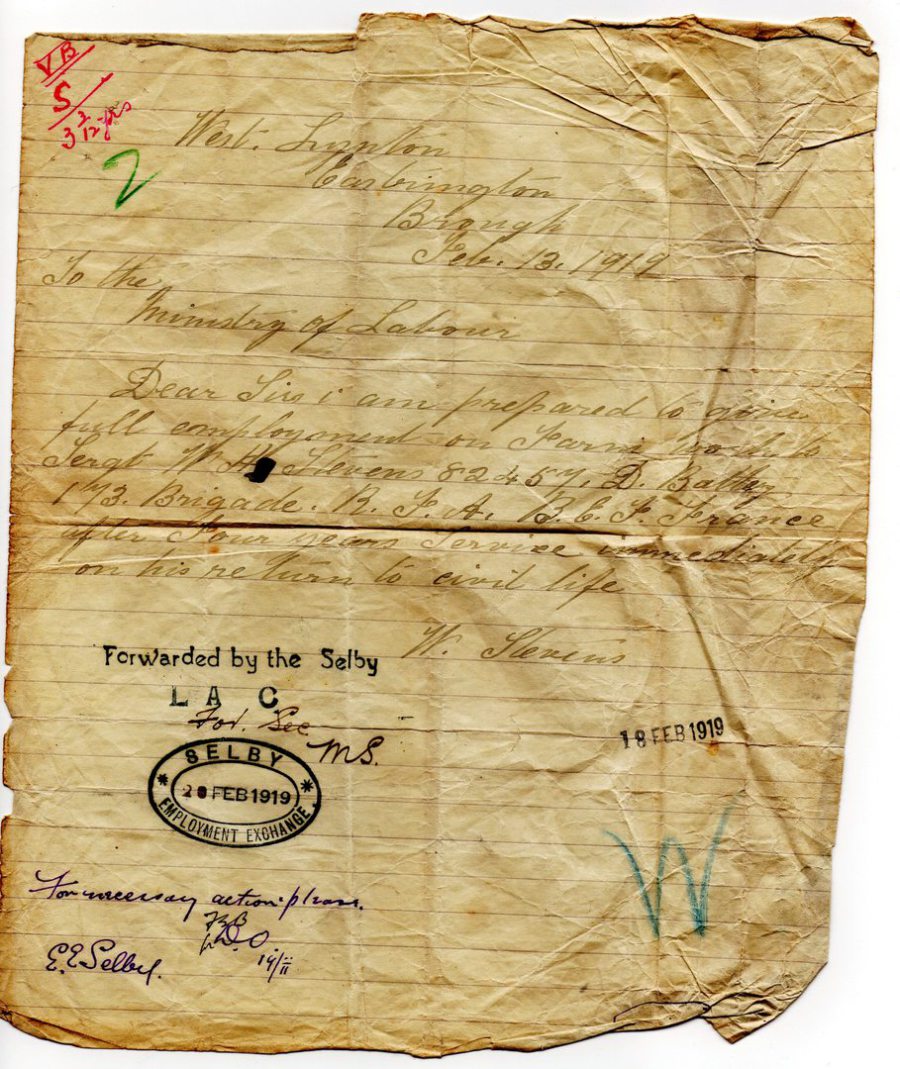 VB
S
3 2/12 yrs
2
West. Lynton
Easbrington
Brough
Feb. 13. 1919
To the
Ministry of Labour
Dear Sirs i am prepared to give
full employment on Farm work to
Sergt W. H. Stevens 82457. D. Battery
173. Brigade. R. F. A. B. E. F. France
after Four years Service immediately
on his return to civil life
W. Stevens
Forwarded by the Selby
L A C
For. Sec
MS.
18 FEB 1919
SELBY
28 FEB 1919
EMPLOYMENT EXCHANGE
W
For necessary action please.
D.O.
14/II
E.E Selby.